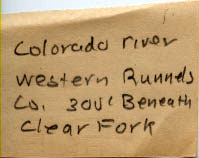 Colorado river
western Runnels
Co. 300' Beneath
Clear Fork